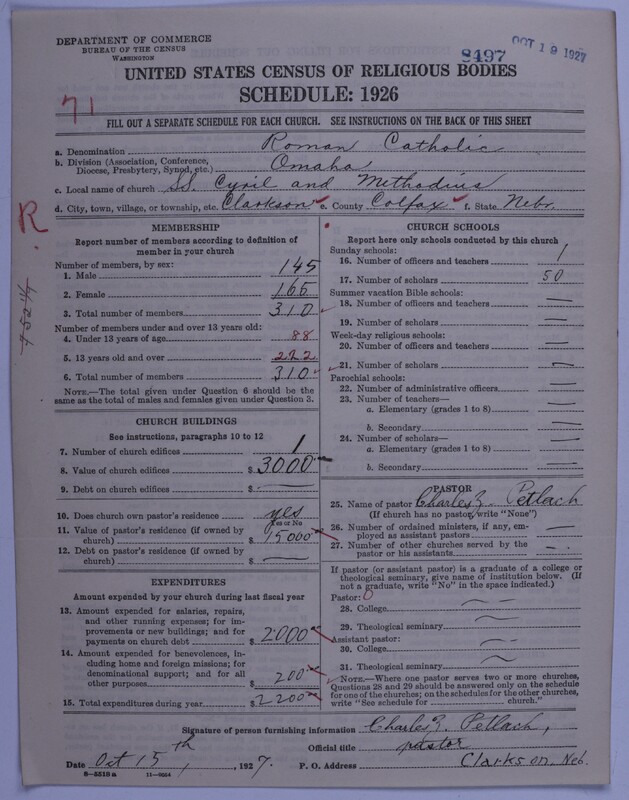 DEPARTMENT OF COMMERCE
BUREAU OF THE CENSUS
WASHINGTON
8497
OCT 19 1927
UNITED STATES CENSUS OF RELIGIOUS BODIES
SCHEDULE: 1926
71
FILL OUT A SEPARATE SCHEDULE FOR EACH CHURCH. SEE INSTRUCTIONS ON THE BACK OF THIS SHEET
a. Denomination Roman Catholic
b. Division (Association, Conference, Diocese, Presbytery, Synod, etc.) Omaha
c. Local name of church SS. Cyril and Methodius
d. City, town, village, or township, etc. Clarkson e. County Colfax f. State Nebr.
R
MEMBERSHIP
Report number of members according to definition of
member in your church
Number of members, by sex:
1. Male 145
2. Female 165
3. Total number of members 310
Number of members under and over 13 years old:
4. Under 13 years of age 88
5. 13 years old and over 222
6. Total number of members 310
NOTE.—The total given under Question 6 should be
same as the total of males and females given under Question 3.
CHURCH BUILDINGS
See instructions, paragraphs 10 to 12
7. Number of church edifices 1
8. Value of church edifices $ 3000
9. Debt on church edifices $ —
10. Does church own pastor's residence yes
Yes or No
11. Value of pastor's residence (if owned by
church) $ 15000
12. Debt on pastor's residence (if owned by
church) $ —
EXPENDITURES
Amount expended by your church during last fiscal year
13. Amount expended for salaries, repairs,
and other running expenses; for im-
provements or new buildings; and for
payments on church debt $ 2000
14. Amount expended for benevolences, in-
cluding home and foreign missions; for
denominational support; and for all
other purposes $ 200
15. Total expenditures during year $ 2200
CHURCH SCHOOLS
Report here only schools conducted by this church
Sunday schools:
16. Number of officers and teachers 1
17. Number of scholars 50
Summer vacation Bible schools:
18. Number of officers and teachers —
19. Number of scholars —
Week-day religious schools:
20. Number of officers and teachers —
21. Number of scholars —
Parochial schools:
22. Number of administrative officers —
23. Number of teachers—
a. Elementary (grades 1 to 8) —
b. Secondary —
24. Number of scholars—
a. Elementary (grades 1 to 8) —
b. Secondary —
PASTOR
25. Name of pastor Charles Z. Petlach
(If church has no pastor, write "None")
26. Number of ordained ministers, if any, em-
ployed as assistant pastors —
27. Number of other churches served by the
pastor or his assistants —
If pastor (or assistant pastor) is a graduate of a college or
theological seminary, give name of institution below. (If
not a graduate, write "No" in the space indicated.)
Pastor: 0
28. College —
29. Theological seminary —
Assistant pastor:
30. College —
31. Theological seminary —
NOTE.—Where one pastor serves two or more churches,
Questions 28 and 29 should be answered only on the schedule
for one of the churches; on the schedules for the other churches,
write "See schedule for church."
Signature of person furnishing information Charles Z. Petlach,
Official title pastor
Date Oct 15th, 1927. P. O. Address Clarkson, Neb.
8—5515a 11—9554